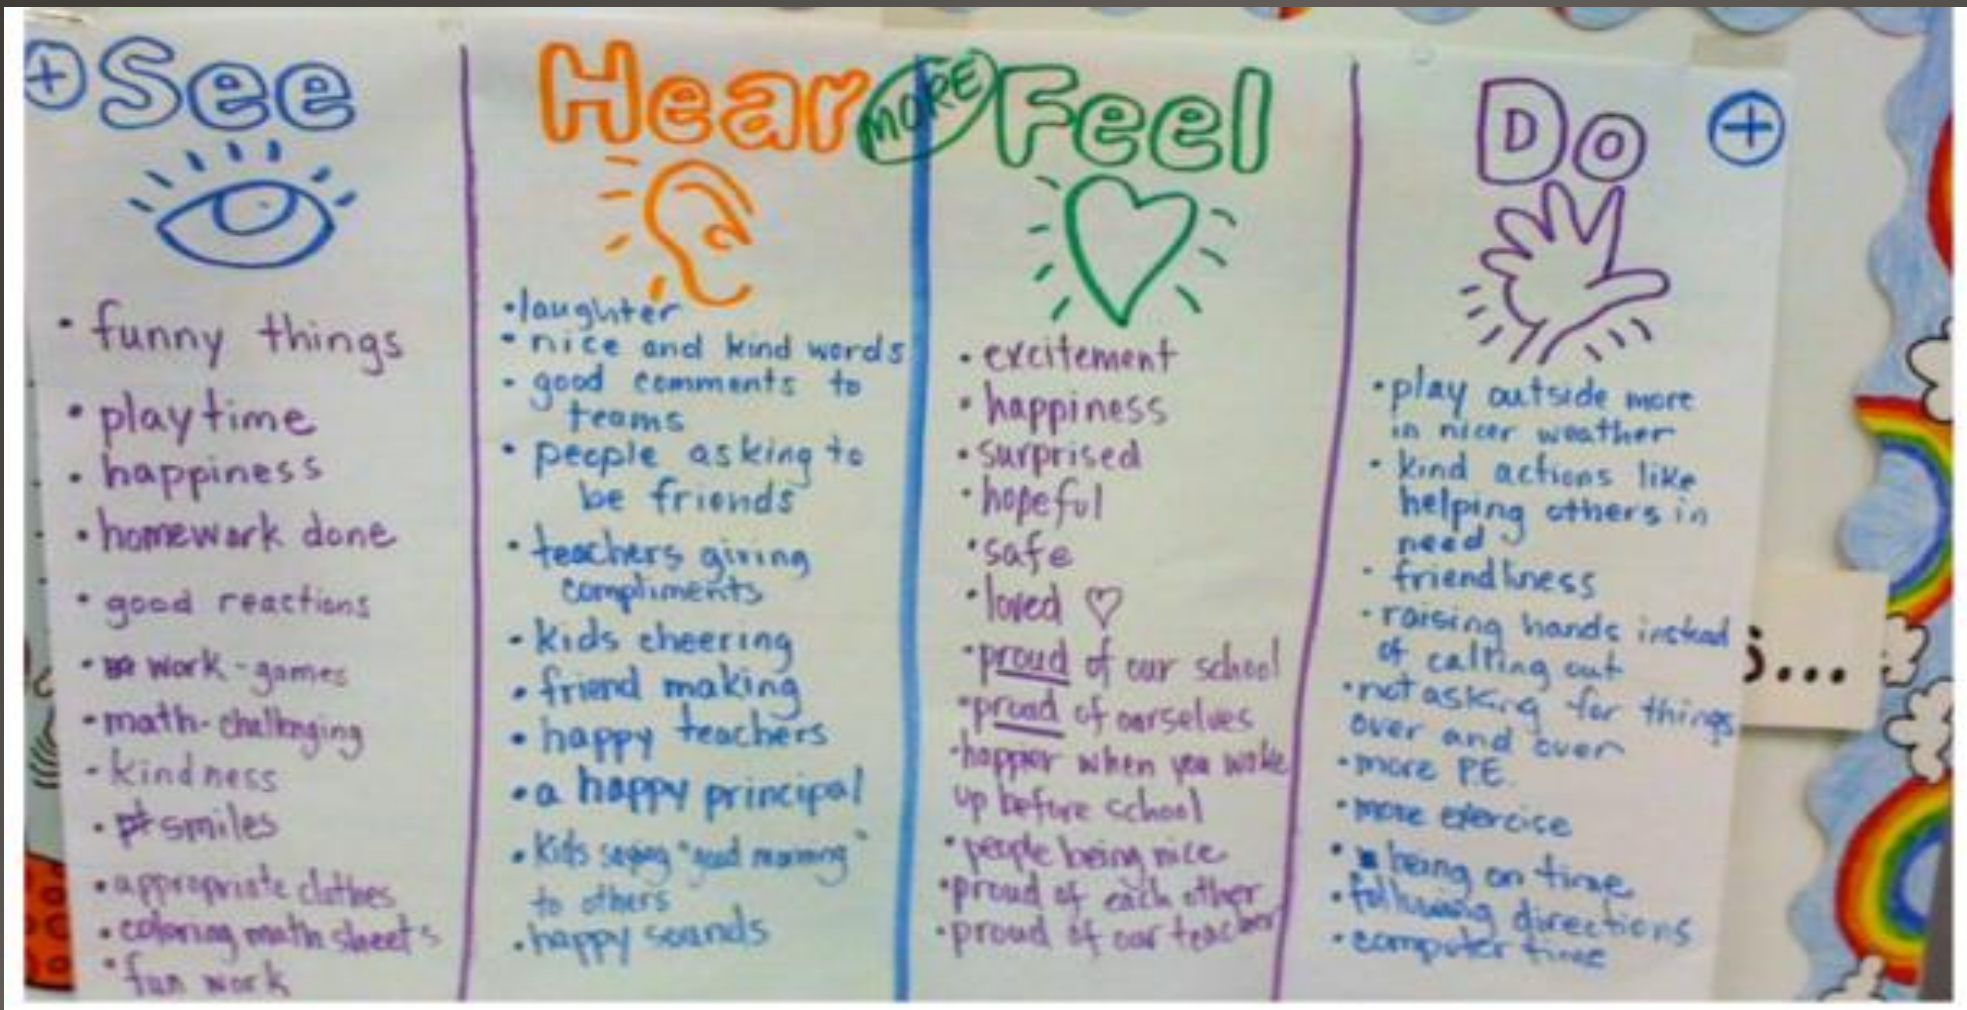 + See
• funny things
• playtime
• happiness
• homework done
• good reactions
• work - games
• math - challenging
- kindness
• smiles
• appropriate clothes
• coloring math sheets
• fun work
Hear
• laughter
• nice and kind words
• good comments to
teams
• people asking to
be friends
• teachers giving
compliments
• kids cheering
• friend making
• happy teachers
• a happy principal
• Kids saying "good morning"
to others
• happy sounds
MORE
Feel
• excitement
• happiness
• surprised
• hopeful
• safe
• loved ♡
• proud of our school
• proud of ourselves
• happier when you wake
up before school
• people being nice
• proud of each other
• proud of our teacher
Do +
• play outside more
in nicer weather
• kind actions like
helping others in
need
• friendliness
• raising hands instead
of calling out
• not asking for things
over and over
• more P.E.
• more exercise
• being on time
• following directions
• computer time
s...